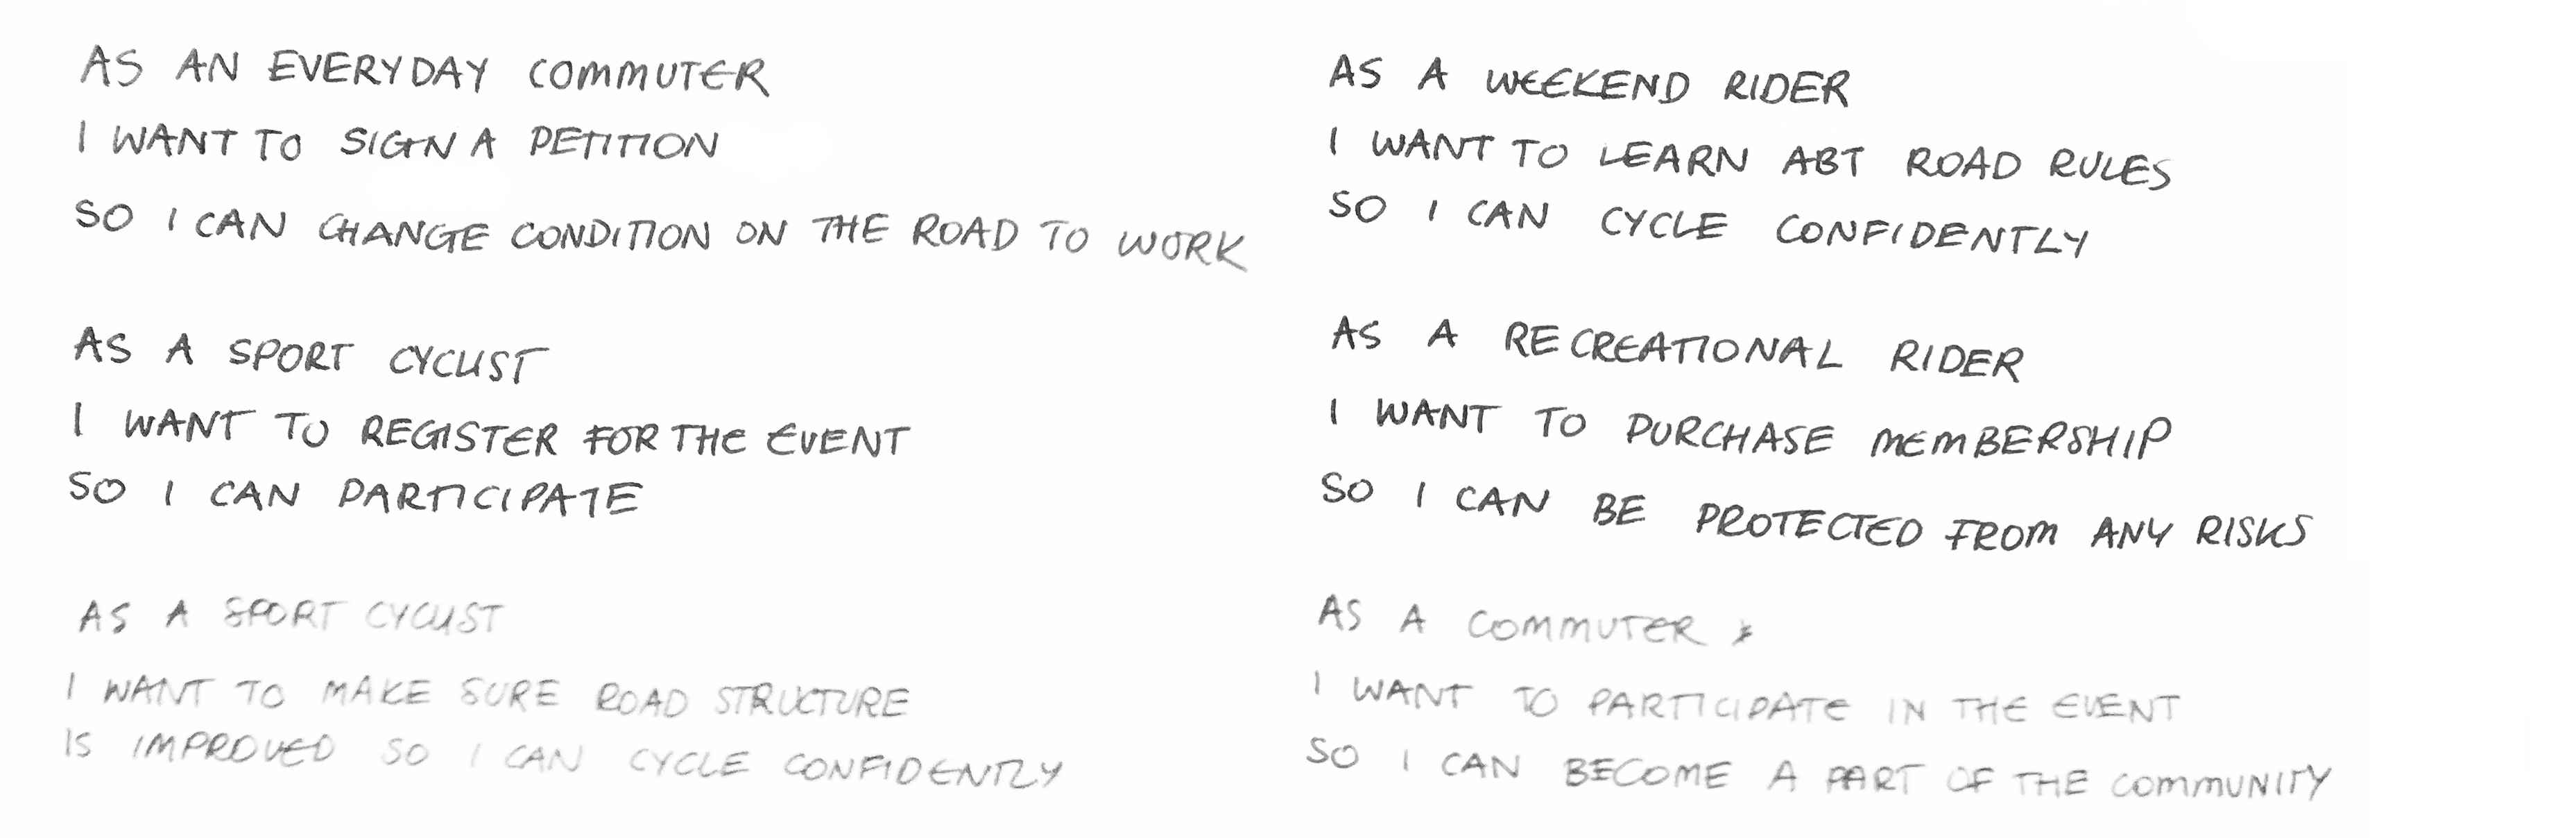 AS AN EVERYDAY COMMUTER
I WANT TO SIGN A PETITION
SO I CAN CHANGE CONDITION ON THE ROAD TO WORK
AS A SPORT CYCLIST
I WANT TO REGISTER FOR THE EVENT
SO I CAN PARTICIPATE
AS A SPORT CYCLIST
I WANT TO MAKE SURE ROAD STRUCTURE
IS IMPROVED SO I CAN CYCLE CONFIDENTLY
AS A WEEKEND RIDER
I WANT TO LEARN ABT ROAD RULES
SO I CAN CYCLE CONFIDENTLY
AS A RECREATIONAL RIDER
I WANT TO PURCHASE MEMBERSHIP
SO I CAN BE PROTECTED FROM ANY RISKS
AS A COMMUTER
I WANT TO PARTICIPATE IN THE EVENT
SO I CAN BECOME A PART OF THE COMMUNITY